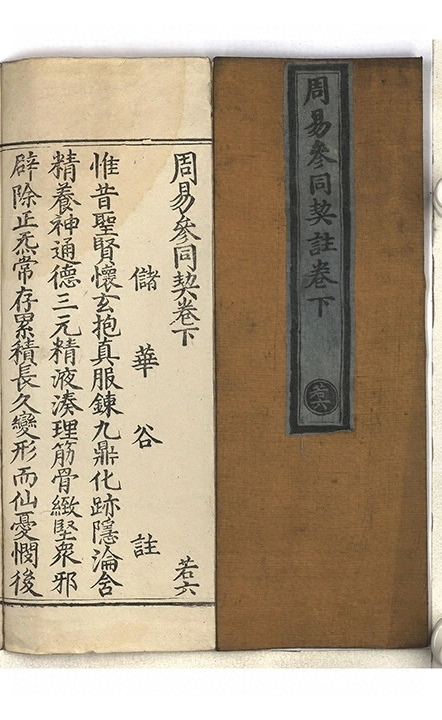 周易參同契註卷下
若六
周易參同契卷下
若六
儲華谷註
惟昔聖賢懷玄抱真服鍊九鼎化跡隱淪含
精養神通德三元精液湊理筋骨緻堅衆邪
辟除正炁常存累積長久變形而仙憂憫後